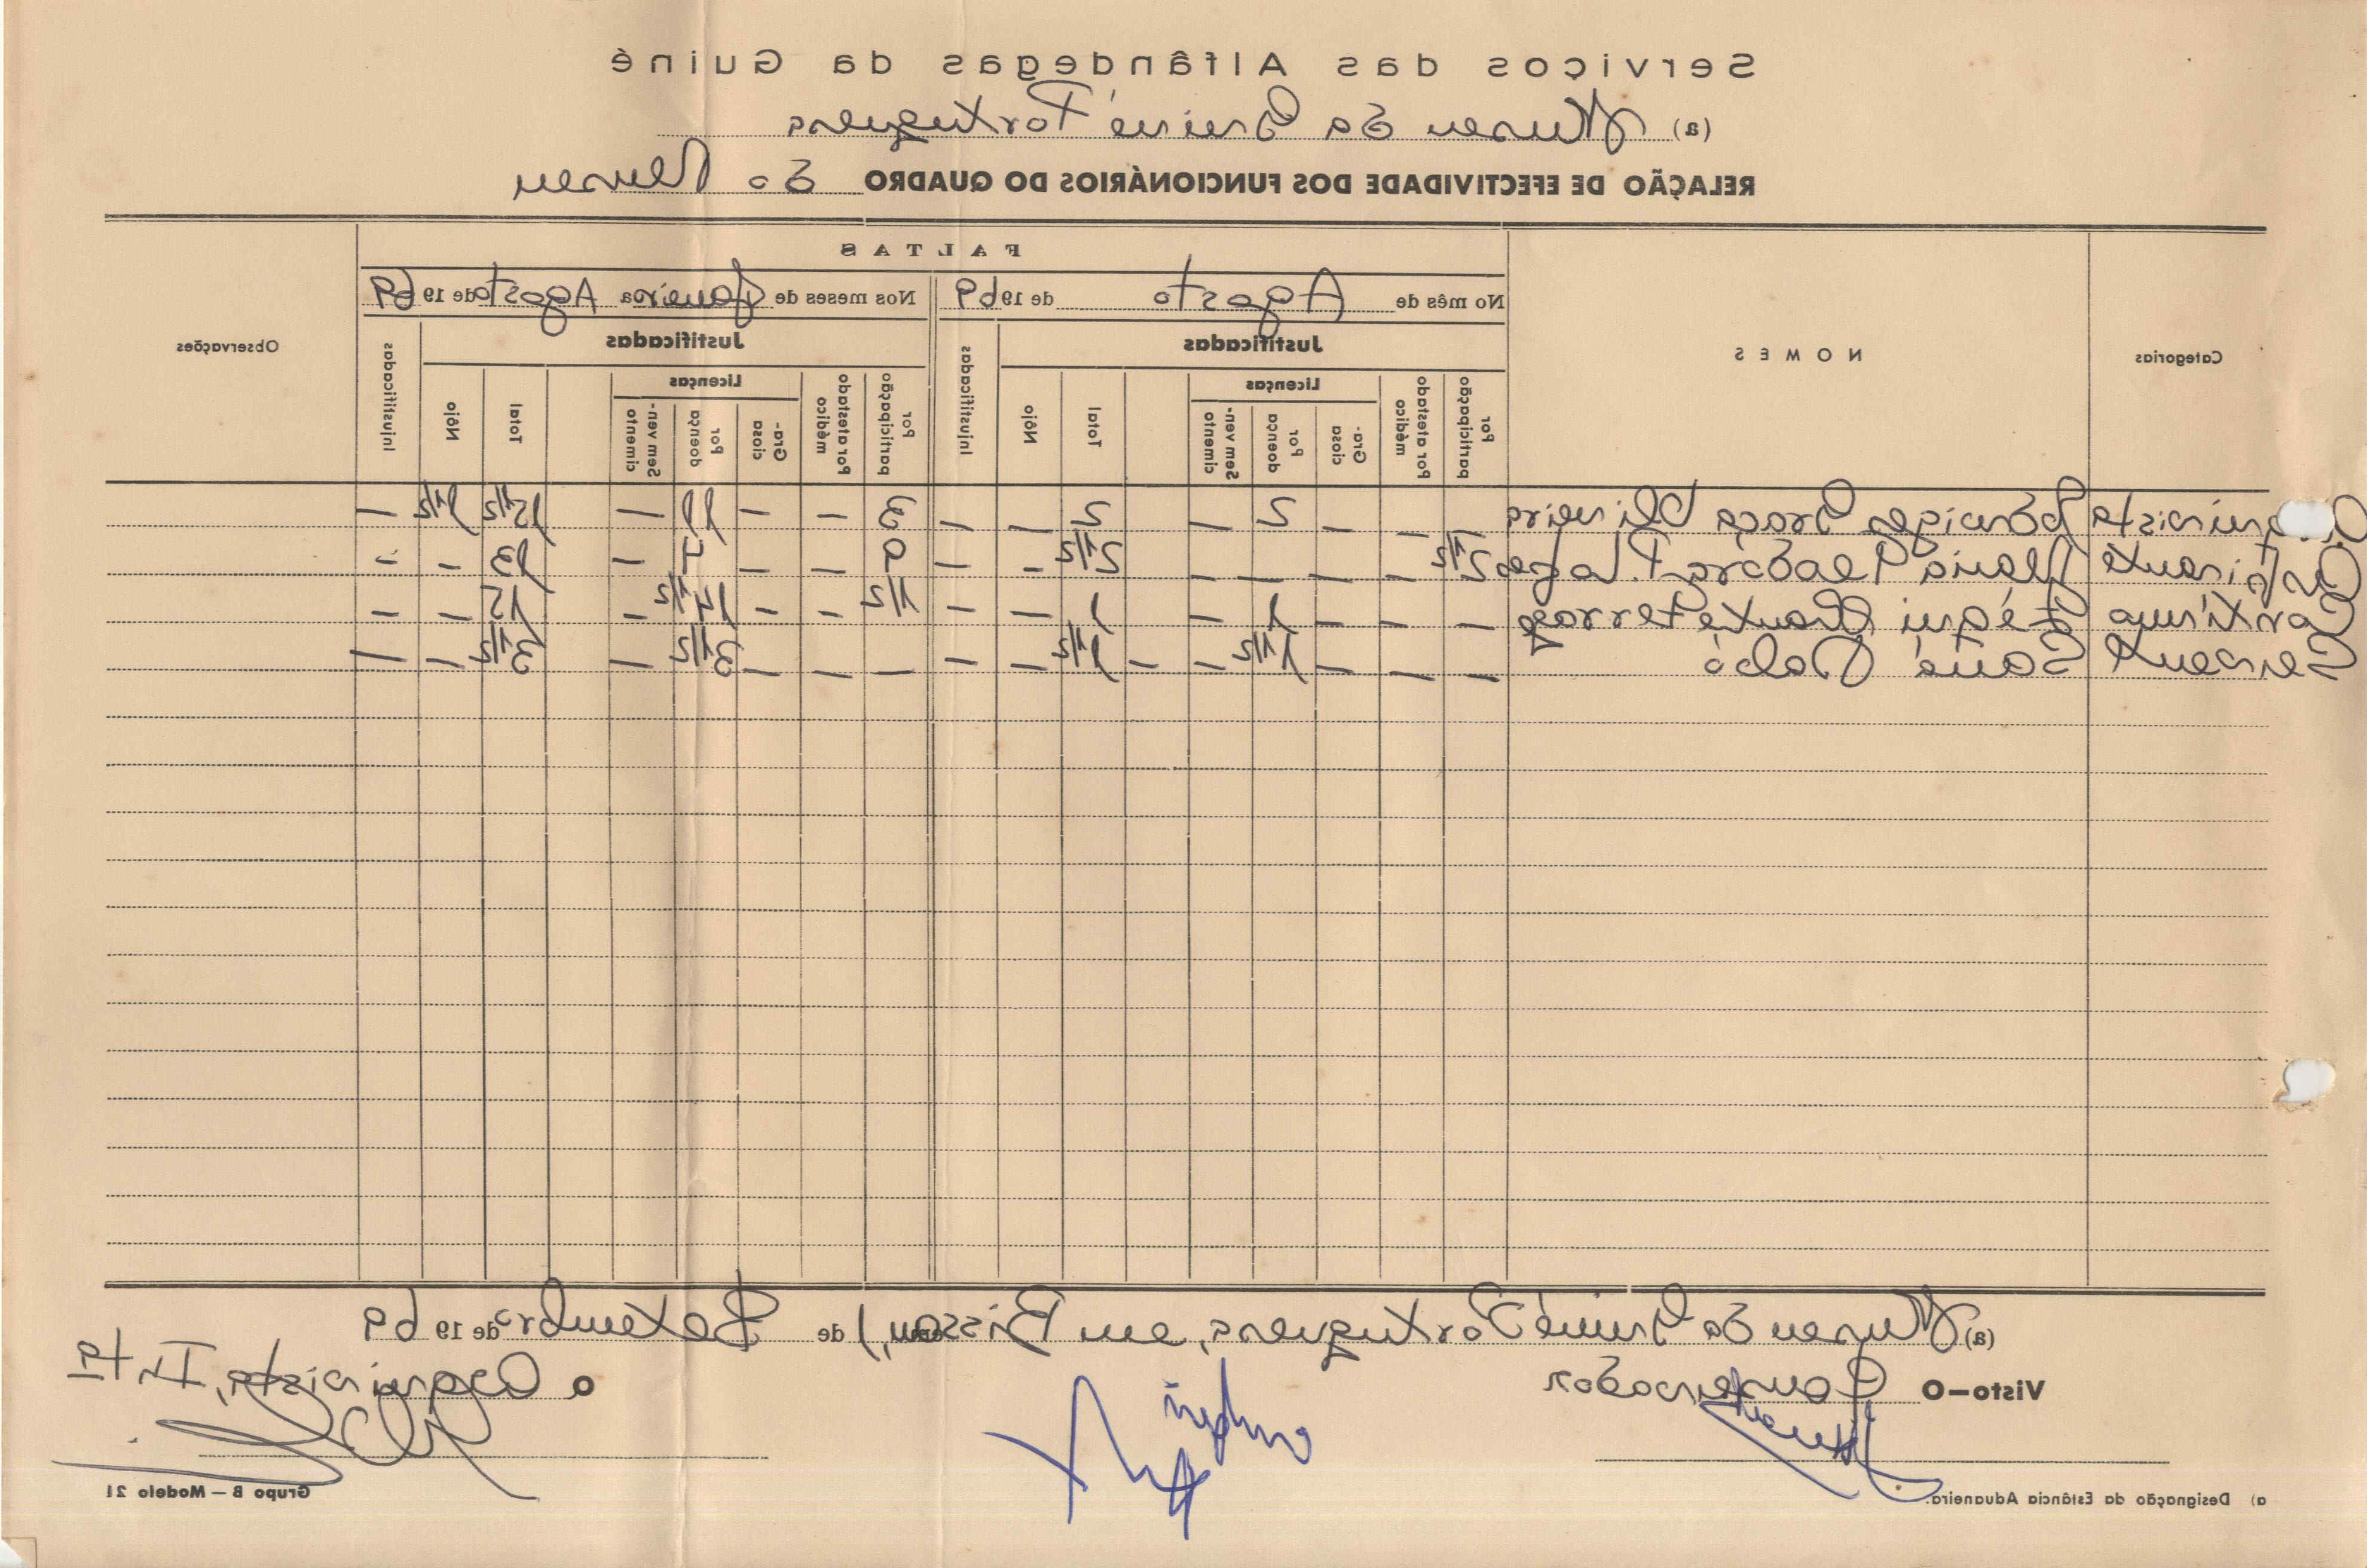 Serviços das Alfândegas da Guiné
(a) Museu da Guiné Portuguesa
RELAÇÃO DE EFECTIVIDADE DOS FUNCIONÁRIOS DO QUADRO do Museu
Categorias
NOMES
FALTAS
No mês de Agosto de 1969
Nos meses de Janeiro a Agosto de 1969
Observações
Justificadas
Injustificadas
Justificadas
Injustificadas
Por participação
Por atestado médico
Licenças
Graciosa
Por doença
Sem vencimento
Total
Nôjo
Por participação
Por atestado médico
Licenças
Graciosa
Por doença
Sem vencimento
Total
Nôjo
— — — 2 — 2 — — 3 — — 11 — 15 1/2 1 1/2 —
2 1/2 — — — — 2 1/2 — — 9 — — 4 — 13 — —
— — — 1 — 1 — — 1/2 — — 14 1/2 — 15 — —
Servente
— — — 1 1/2 — — 1 1/2 — — — — — 3 1/2 — 3 1/2 — —
(a) Museu da Guiné Portuguesa, em Bissau, 1 de Setembro de 1969
Visto—O Conservador
O
a) Designação da Estância Aduaneira.
Grupo B — Modelo 21